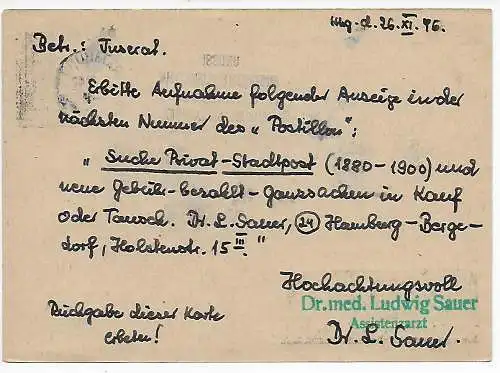 Hbg. d. 26. XI. 46.
Betr.: Inserat.
Erbitte Aufnahme folgender Anzeige in der
nächsten Nummer des „Postillon":
„Suche Privat-Stadtpost (1880-1900) und
neue Gebühr-bezahlt-Ganzsachen in Kauf
oder Tausch. Dr. L. Sauer, (24) Hamburg-Berge-
dorf, Holstenstr. 15 III."
Hochachtungsvoll
Dr. med. Ludwig Sauer
Assistenzarzt
Dr. L. Sauer.
Rückgabe dieser Karte
erbeten!